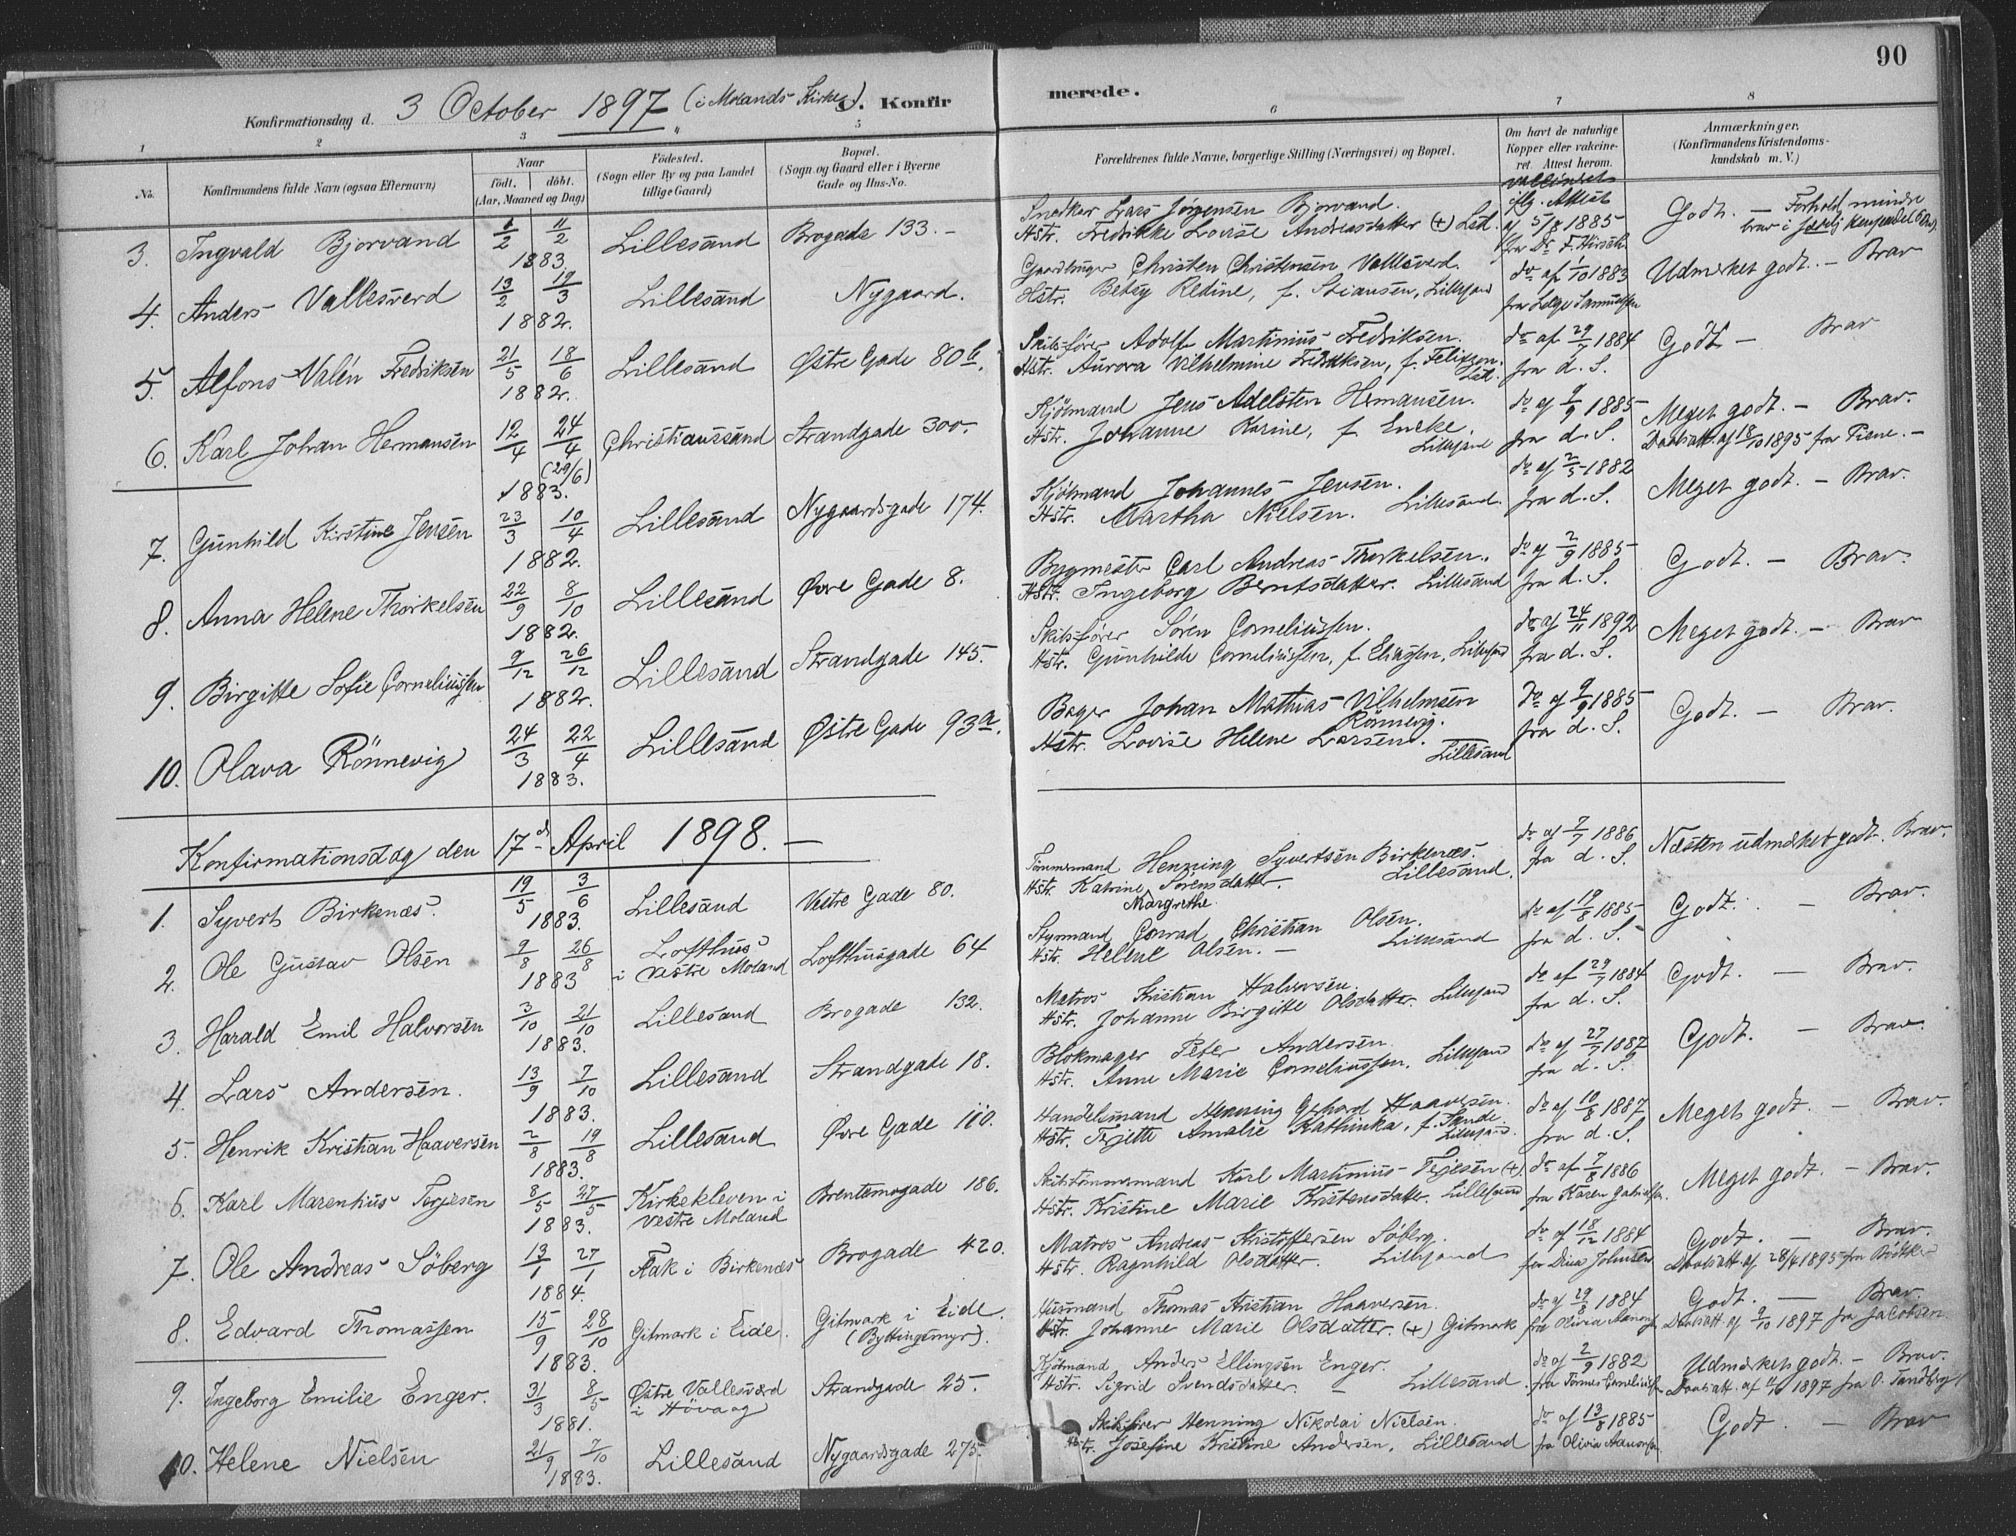 90
Konfirmationsdag d. 3 October 1897 (i Molands Kirke) C. Konfir merede.
1 2 3 5 6 7 8
No.
Konfirmandens fulde Navn (ogsaa Efternavn)
Naar
födt. döbt.
(Aar, Maaned og Dag)
Födested.
(Sogn eller By og paa Landet
tillige Gaard)
Bopæl.
(Sogn og Gaard eller i Byerne
Gade og Hus-No.
Forældrenes fulde Navne, borgerlige Stilling (Næringsvei) og Bopæl.
Om havt de naturlige
Kopper eller vakcine-
ret. Attest herom.
Anmærkninger.
(Konfirmandens Kristendoms-
kundskab m. V.)
3. Ingvald Bjorvand 6/2 11/2 1883. Lillesand Brogade 133. –
Snedker Lars Jörgensen Bjorvand.
Hstr. Fredrikke Lovise Andreasdatter (+) Lsd.
vaccineret
iflg. Attest
af 5/8 1885
fra Dr. F. Hirsch
Godt. – Forhold mindre
brav i
4. Anders Vallesverd 13/2 19/3 1882. Lillesand Nygaard.
Gaardbruger Christen Christensen Vallesverd.
Hstr. Betsy Redine, f. Stiansen, Lillesand
do af 1/10 1883
fra Læge Samuelsen
Udmerket godt. – Brav
5. Alfons Valén Fredriksen 21/5 18/6 1882. Lillesand Østre Gade 80 b.
Skibsfører Adolf Martinius Fredriksen.
Hstr. Aurora Vilhelmine Fredriksen, f. Felixsen. Lsd.
do af 29/7 1884
fra d. S.
Godt – Brav
6. Karl Johan Hermansen 12/4 24/4 (29/6) 1883. Christianssand Strandgade 300.
Kjöbmand Jens Adelsten Hermansen.
Hstr. Johanne Karine, f. Encke. Lillesand
do af 9/9 1885
fra d. S.
Meget godt. – Brav.
Daabsatt. af 18/10 1895 fra Tiene. –
7. Gunhild Kirstine Jensen 23/3 10/4 1882. Lillesand Nygaardsgade 174.
Kjöbmand Johannes Jensen.
Hstr. Martha Nielsen. Lillesand.
do af 2/5 1882
fra d. S.
Meget godt. – Brav.
8. Anna Helene Thorkelsen 22/9 8/10 1882. Lillesand Øvre Gade 8.
Bygmester Carl Andreas Thorkelsen.
Hstr. Ingeborg Berntsdatter. Lillesand
do af 2/9 1885
fra d. S.
Godt. – Brav.
9. Birgitte Sofie Corneliussen 9/12 26/12 1882. Lillesand Strandgade 145.
Skibsfører Sören Corneliussen.
Hstr. Gunhilde Corneliussen, f. Eliassen, Lillesand
do af 24/11 1892
fra d. S.
Meget godt. – Brav
10. Olava Rönnevig 24/3 22/4 1883. Lillesand Østre Gade 93 a.
Bager Johan Mathias Vilhelmsen
Rönnevig.
Hstr. Lovise Helene Larsen. Lillesand
do af 9/9 1885
fra d. S.
Godt. – Brav.
Konfirmationsdag den 17d April 1898. –
1. Syvert Birkenæs. 19/5 3/6 1883. Lillesand Vestre Gade 80.
Tömmermand Henning Syvertsen Birkenæs.
Hstr. Katrine Sörensdatter. Lillesand.
Margrethe
do af 7/7 1886
fra d. S.
Næsten udmærket godt. Brav.
2. Ole Gustav Olsen 9/8 26/8 1883 Lofthus
i Vestre Moland Lofthusgade 64
Styrmand Conrad Christian Olsen.
Hstr. Helene Olsen. – Lillesand
do af 19/8 1885
fra d. S.
Godt. – Brav.
3. Harald Emil Halvorsen 3/10 21/10 1883. Lillesand Brogade 132.
Matros Kristian Halvorsen.
Hstr. Johanne Birgitte Olsdatter. Lillesand
do af 29/7 1884
fra d. S.
Godt. – Brav.
4. Lars Andersen. 13/9 7/10 1883. Lillesand Strandgade 18.
Blokmager Peter Andersen.
Hstr. Anne Marie Corneliussen. Lillesand
do af 27/7 1887
fra d. S.
Godt. – Brav.
5. Henrik Kristian Haaversen 2/8 19/8 1883. Lillesand Øvre Gade 110.
Handelsmand Henning Gerhard Haaversen.
Hstr. Terjette Amalie Kathinka, f. Sande. Lillesand.
do af 10/8 1887
fra d. S.
Meget godt. – Brav.
6. Karl Marenhius Terjesen 8/5 27/5 1883. Kirkekleven i
Vestre Moland Brentemogade 186.
Skibstömmermand Karl Martinius Terjesen (+)
Hstr. Kristine Marie Kristensdatter. Lillesand
do af 7/8 1886
fra Karen Gabrielsen
Meget godt. – Brav.
7. Ole Andreas Söberg 13/1 27/1 1884. Flak i Birkenæs Brogade 420.
Matros Andreas Kristoffersen Söberg.
Hstr. Ragnhild Olsdatter. Lillesand
do af 18/12 1884
fra Dina Johnsen
Godt. – Brav.
Daabsatt. af 28/4 1895 fra Bödtker
8. Edvard Thomassen 15/9 28/10 1883. Gitmark i Eide. Gitmark i Eide.
(Byttingsmyr).
Husmand Thomas Kristian Haaversen.
Hstr. Johanne Marie Olsdatter. (+) Gitmark
do af 29/8 1884
fra Olivia Aanonsen
Godt. – Brav.
Daabsatt. af 9/10 1897 fra Jacobsen
9. Ingeborg Emilie Enger. 31/3 8/5 1881. Østre Vallesværd
i Hövaag Strandgade 25.
Kjöbmand Anders Ellingsen Enger.
Hstr. Sigrid Svendsdatter. – Lillesand.
do af 2/9 1882
fra Tomas Corneliussen
Udmærket godt. – Brav.
Daabsatt. af 1897 fra O. Tandberg
10. Helene Nielsen 21/9 7/10 1883. Lillesand Nygaardsgade 275.
Skibsfører Henning Nikolai Nielsen.
Hstr. Josefine Kristine Andersen, Lillesand
do af 13/8 1885
fra Olivia Aanonsen.
Godt – Brav